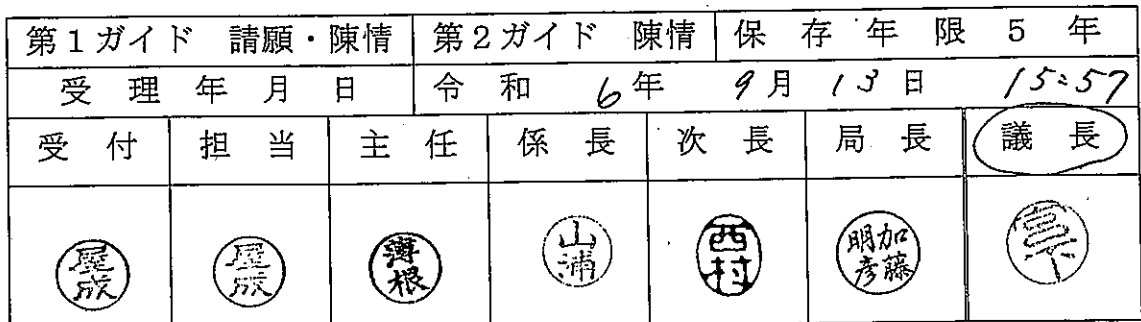 第1ガイド 請願・陳情 第2ガイド 陳情 保存年限5年
受理年月日 令和6年9月13日 15:57
受付 担当 主任 係長 次長 局長 議長
屋成 屋成 薄根 山浦 西村 加藤明彦